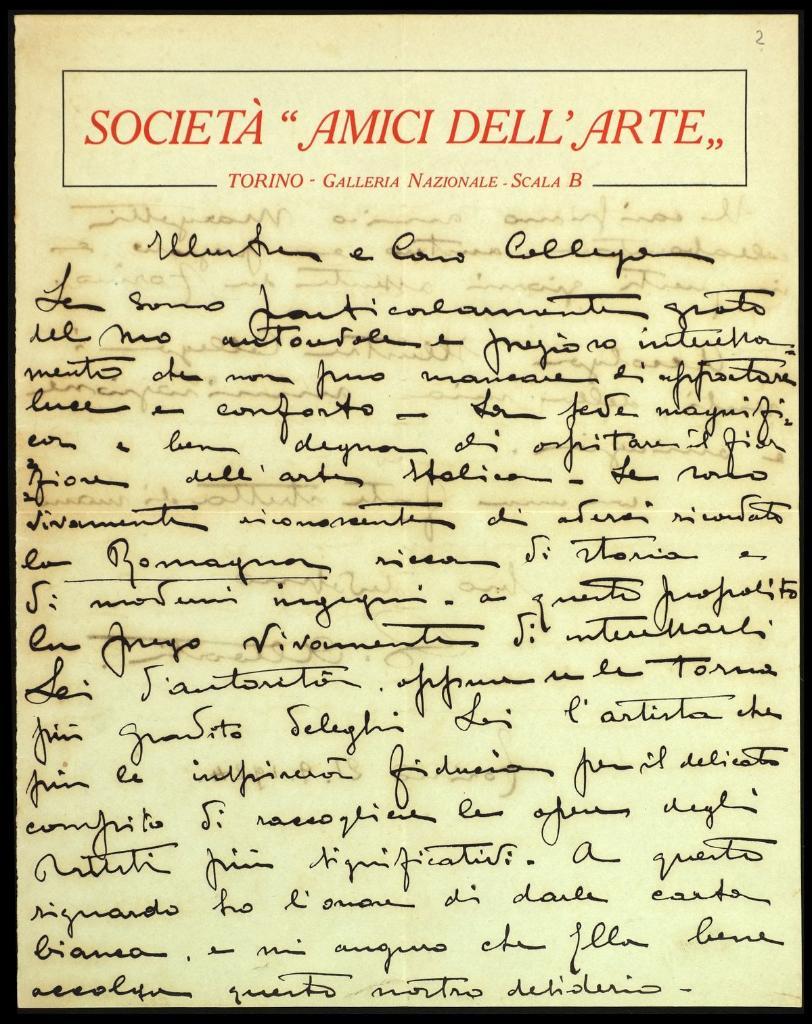 2
SOCIETÀ "AMICI DELL'ARTE„
TORINO - GALLERIA NAZIONALE - SCALA B
Illustre e Caro Collega
Le sono particolarmente grato
del suo autorevole e prezioso interessa=
mento che non può mancare di apportare
luce e conforto — La sede magnifi=
ca e ben degna di ospitare il fior
fiore dell'arte Italica — Le sono
vivamente riconoscente di averci ricordato
la Romagna ricca di storia e
di moderni ingegni. a questo proposito
la prego vivamente di interessarsi
Lei d'autorità, oppure se le torna
più gradito deleghi Lei l'artista che
più le inspirerà fiducia per il delicato
compito di raccogliere le opere degli
Artisti più significativi. A questo
riguardo ho l'onore di darle carta
bianca, e mi auguro che Ella bene
accolga questo nostro desiderio —